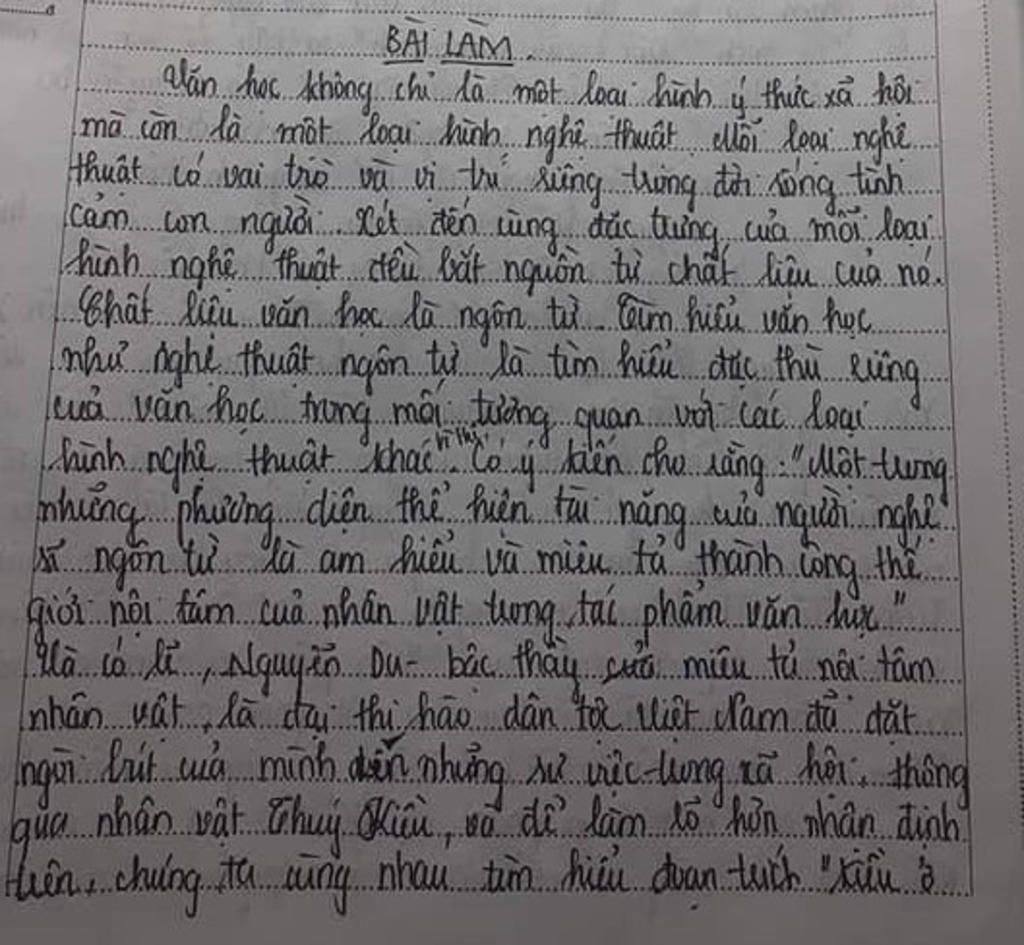 BÀI LÀM.
Văn học không chỉ là một loại hình ý thức xã hội
mà còn là một loại hình nghệ thuật. Mỗi loại nghệ
thuật có vai trò và vị trí riêng trong đời sống tình
cảm con người. Xét đến cùng đặc trưng của mỗi loại
hình nghệ thuật đều bắt nguồn từ chất liệu của nó.
Chất liệu văn học là ngôn từ. Tìm hiểu văn học
như nghệ thuật ngôn từ là tìm hiểu đặc thù riêng
của văn học trong mối tương quan với các loại
hình nghệ thuật khác. Vì thế, Có ý kiến cho rằng: "Một trong
những phương diện thể hiện tài năng của người nghệ
sĩ ngôn từ là am hiểu và miêu tả thành công thế
giới nội tâm của nhân vật trong tác phẩm văn học"
Và có lẽ, Nguyễn Du - bậc thầy của miêu tả nội tâm
nhân vật, là đại thi hào dân tộc Việt Nam đã đặt
ngòi bút của mình đến những sự việc trong xã hội, thông
qua nhân vật Thuý Kiều, và để làm rõ hơn nhận định
trên, chúng ta cùng nhau tìm hiểu đoạn trích "Kiều ở